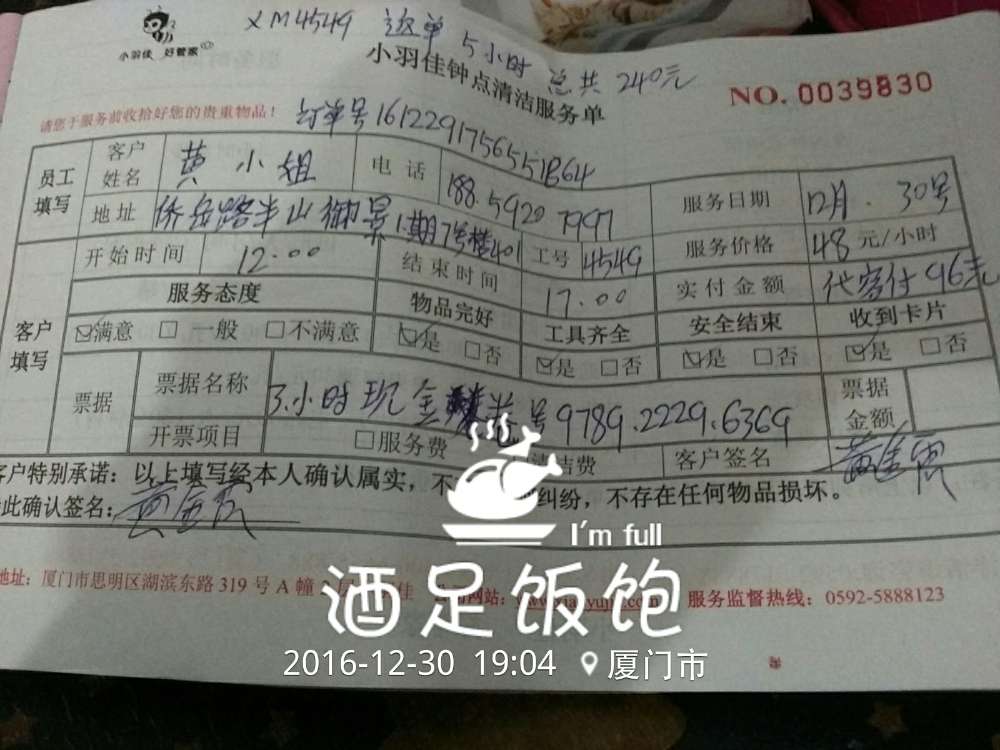 XM4549 返单 5小时 总共 240元
小羽佳 好管家
小羽佳钟点清洁服务单
NO. 0039830
请您于服务前收拾好您的贵重物品！ 订单号1612291756551864
员工填写 客户姓名 黄小姐 电话 188.5920 7997 服务日期 12月.30号
地址 侨岳路半山御景1期7号楼401 工号 4549 服务价格 48元/小时
开始时间 12.00 结束时间 17.00 实付金额 代客付96元
客户填写 服务态度 物品完好 工具齐全 安全结束 收到卡片
☑满意 □一般 □不满意 ☑是 □否 ☑是 □否 ☑是 □否 ☑是 □否
票据 票据名称 3小时现金 券号9789.2229.6369 票据金额
开票项目 □服务费 清洁费 客户签名
客户特别承诺：以上填写经本人确认属实，不 纠纷，不存在任何物品损坏。
此确认签名：
I'm full
地址：厦门市思明区湖滨东路 319 号 A 幢 佳 网站： 服务监督热线：0592-5888123
酒足饭饱
2016-12-30 19:04 厦门市